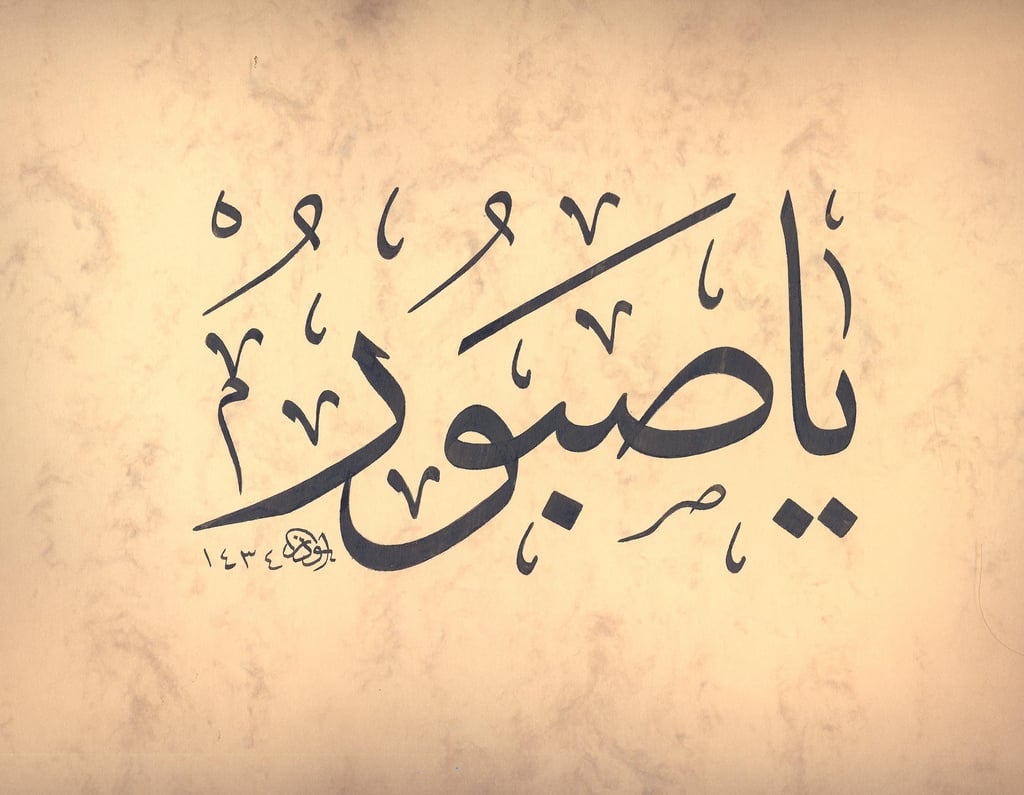 يا صَبُورُ
١٤٣٤